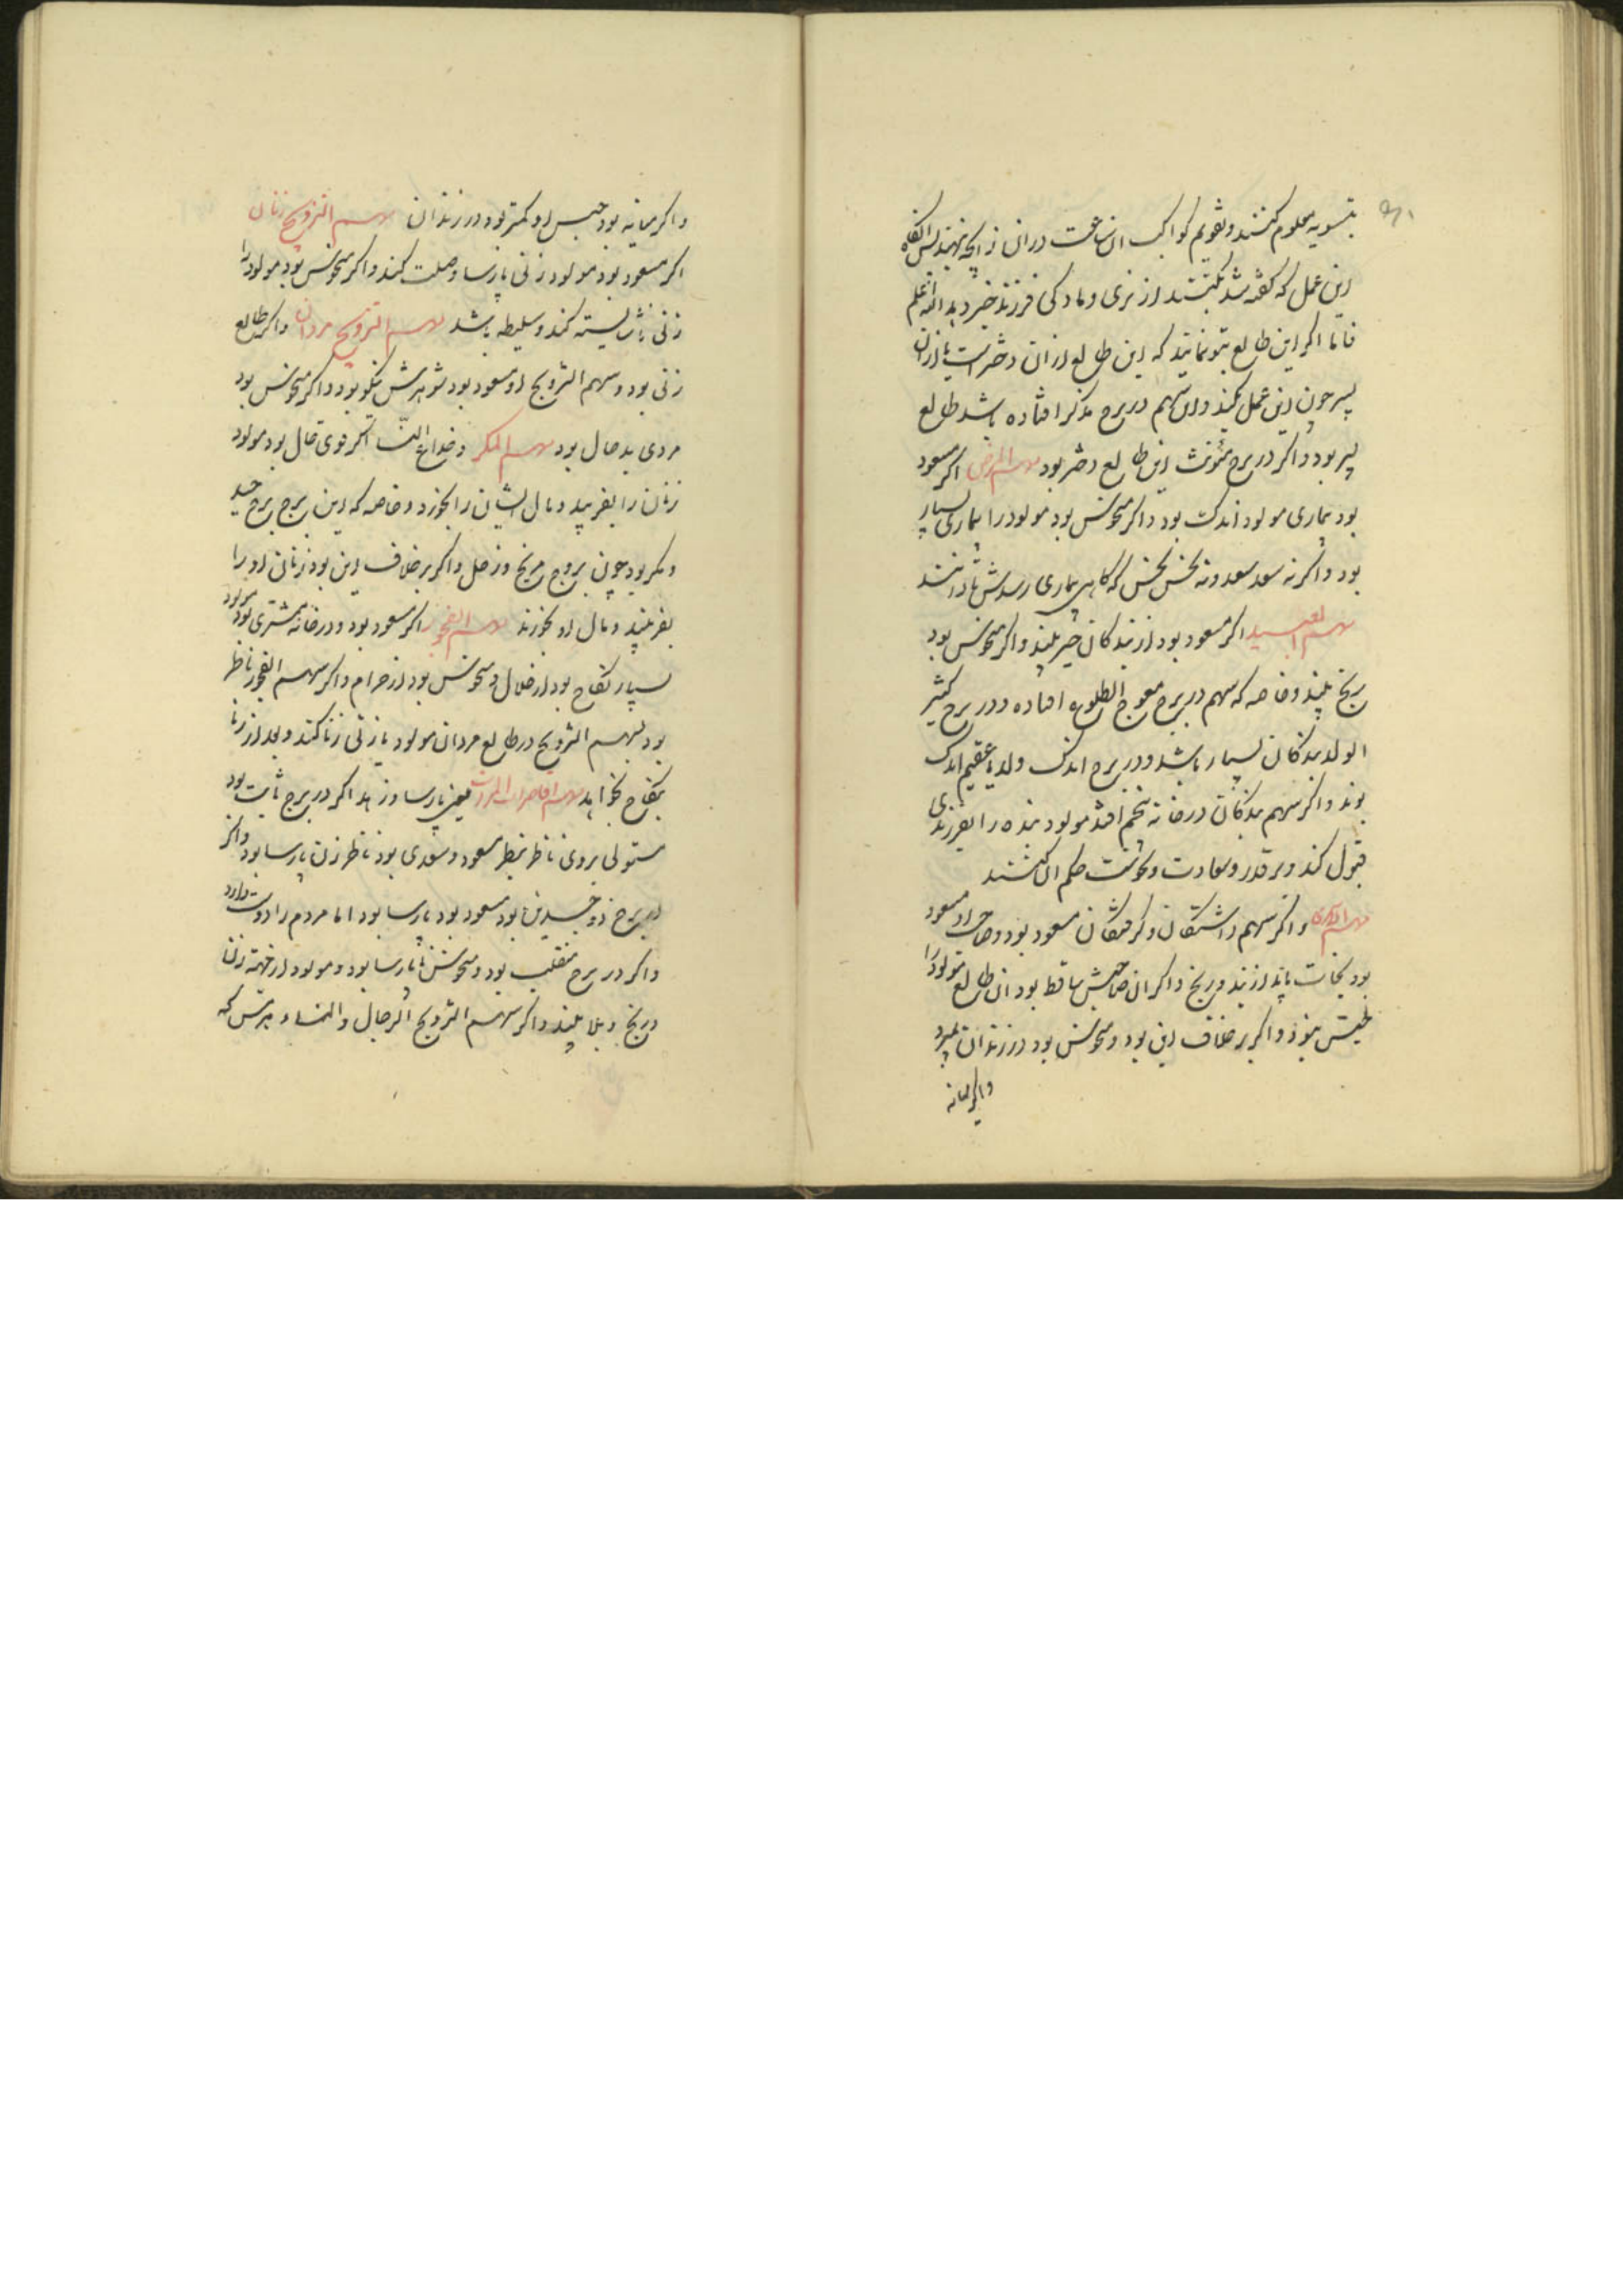 بتسویه معلوم کنند و تقویم کواکب آن ساعت در آن زایجه نهند پس آنکاه
این عمل که کفته شد بکنند از نری و مادکی فرزند خبر دهد الله اعلم
فاما اکر این طالع بتو نمایند که این طالع از آن دختر است یا از آن
پسر چون این عمل بکنند و آن سهم در برج مذکر افتاده باشد طالع
پسر بود و اکر در برج مؤنث این طالع دختر بود سهم المرض اکر مسعود
بود بیماری مولود اندک بود و اکر منحوس بود مولود را بیماری بسیار
بود و اکر نه سعد سعد و نه نحس نحس که کاهی بیماری رسدش
سهم العبید اکر مسعود بود از بندکان خیر بیند و اکر منحوس بود
رنج بیند و خاصه که سهم در برج معوج الطلوع افتاده و در برج کثیر
الولد بندکان بسیار باشد و در برج اندک ولد یا عقیم اندک
بوند و اکر سهم بندکان در خانه پنجم افتد مولود بنده را بفرزندی
قبول کند و بر قدر و سعادت و نحوست حکم آن کنند
واکر سهم و کرفتکان مسعود بود و صاحب او مسعود
بود نجات یابد از بند و رنج و اکر آن صاحبش ساقط بود آن طالع مولود را
بود و اکر بر خلاف این بود و منحوس بود در زندان بمیرد
واکر میانه
واکر میانه بود حبس او کمتر بود در زندان سهم التزویج زنان
اکر مسعود بود مولود زنی پارسا وصلت کند و اکر منحوس بود مولود را
زنی ناشایسته کند و سلیطه باشد سهم التزویج مردان و اکر طالع
زنی بود و سهم التزویج او مسعود بود شوهرش نیکو بود و اکر منحوس بود
مردی بد حال بود سهم المکر و خداع النسا اکر قوی حال بود مولود
زنان را بفریبد و مال ایشان را بخورد و خاصه که این برج برج حیله
و مکر بود چون بروج مریخ و زحل و اکر بر خلاف این بود زنان او را
بفریبند و مال او بخورند سهم الفجور اکر مسعود بود و در خانه مشتری بود مولود
بسیار نکاح بود از حلال و منحوس بود از حرام و اکر سهم الفجور ناظر
بود بسهم التزویج در طالع مردان مولود با زنی زنا کند و بعد از زنا
بنکاح بخواهد سهم یعنی پارسا و زاهد اکر در برج ثابت بود
مستولی بروی ناظر بنظر مسعود و سعدی بود ناظر زن پارسا بود و اکر
در برج ذو جسدین بود مسعود بود پارسا بود اما مردم را دوست دارد
واکر در برج منقلب بود و منحوس ناپارسا بود و مولود از جهة زنان
و رنج و بلا بیند و اکر سهم التزویج الرجال والنساء بپرس که